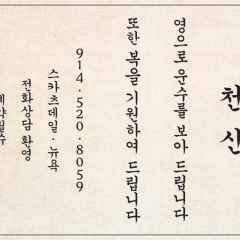 천신
영으로 운수를 보아 드립니다
또한 복을 기원하여 드립니다
914·520·8059
스카츠데일·뉴욕
전화상담 환영
예약필수